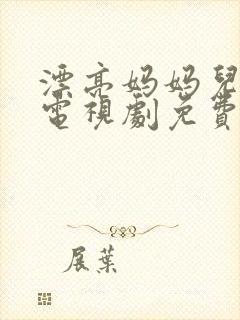 漂亮妈妈兒
電視劇免費
展葉